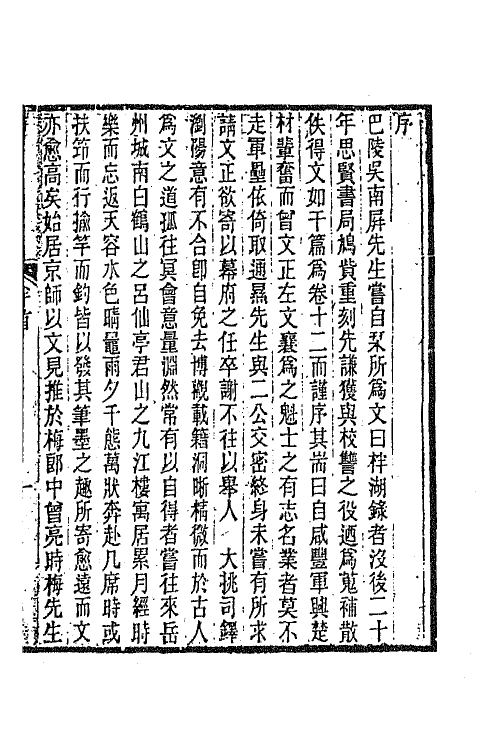 序
巴陵吳南屛先生嘗自栞所爲文曰柈湖錄者沒後二十
年思賢書局鳩貲重刻先謙獲與校讐之役迺爲蒐補散
佚得文如干篇爲卷十二而謹序其耑曰自咸豐軍興楚
材輩奮而曾文正左文襄爲之魁士之有志名業者莫不
走軍壘依倚取通㬎先生與二公交密終身未嘗有所求
請文正欲寄以幕府之任卒謝不往以舉人　大挑司鐸
瀏陽意有不合卽自免去博觀載籍洞晰精微而於古人
爲文之道孤往冥會意量淵然常有以自得者嘗往來岳
州城南白鶴山之呂仙亭君山之九江樓寓居累月經時
樂而忘返天容水色晴曇雨夕千態萬狀奔赴几席時或
扶筇而行揄竿而釣皆以發其筆墨之趣所寄愈遠而文
亦愈高矣始居京師以文見推於梅郞中曾亮時梅先生